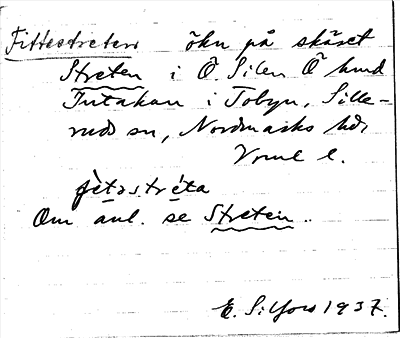 Fittestreten ökn på skäret
Streten i Ö. Silen Ö hmd
Intakan i Tobyn, Sille-
rud sn, Nordmarks hd,
Vrml l.
fètastréta
Om anl. se Streten.
E. Silfors 1937.